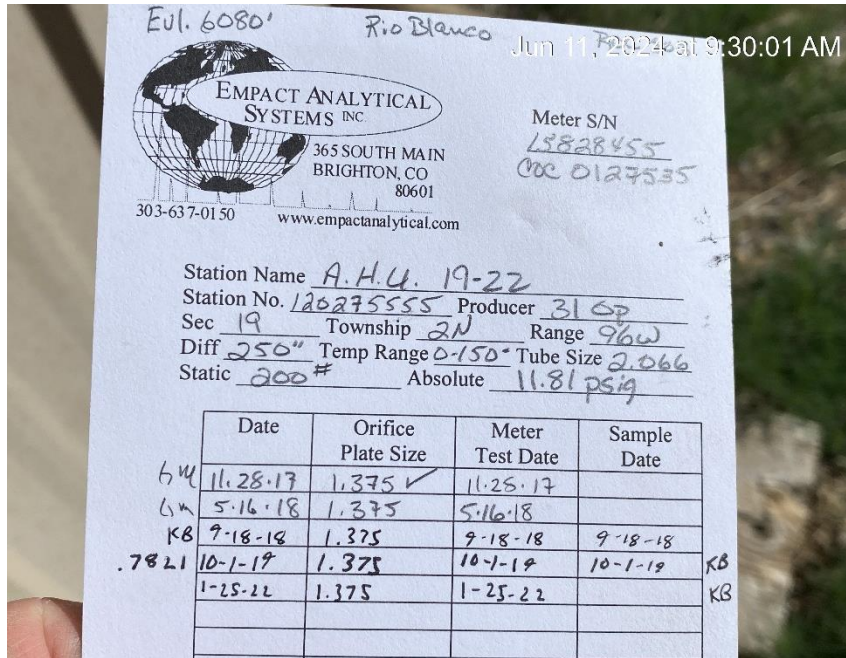 Evl. 6080'
Rio Blanco
Jun 11, 2024 at 9:30:01 AM
EMPACT ANALYTICAL
SYSTEMS INC.
365 SOUTH MAIN
BRIGHTON, CO
80601
303-637-0150
www.empactanalytical.com
Meter S/N
L5828455
COC 0127535
Station Name A.H.U. 19-22
Station No. 120275555 Producer 31 Op
Sec 19 Township 2N Range 96W
Diff 250" Temp Range 0-150° Tube Size 2.066
Static 200# Absolute 11.81 psig
Date Orifice Plate Size Meter Test Date Sample Date
11.28.17 1.375 ✓ 11.28.17
5.16.18 1.375 5.16.18
KB 9-18-18 1.375 9-18-18 9-18-18
.7821 10-1-19 1.375 10-1-19 10-1-19 KB
1-25-22 1.375 1-25-22 KB